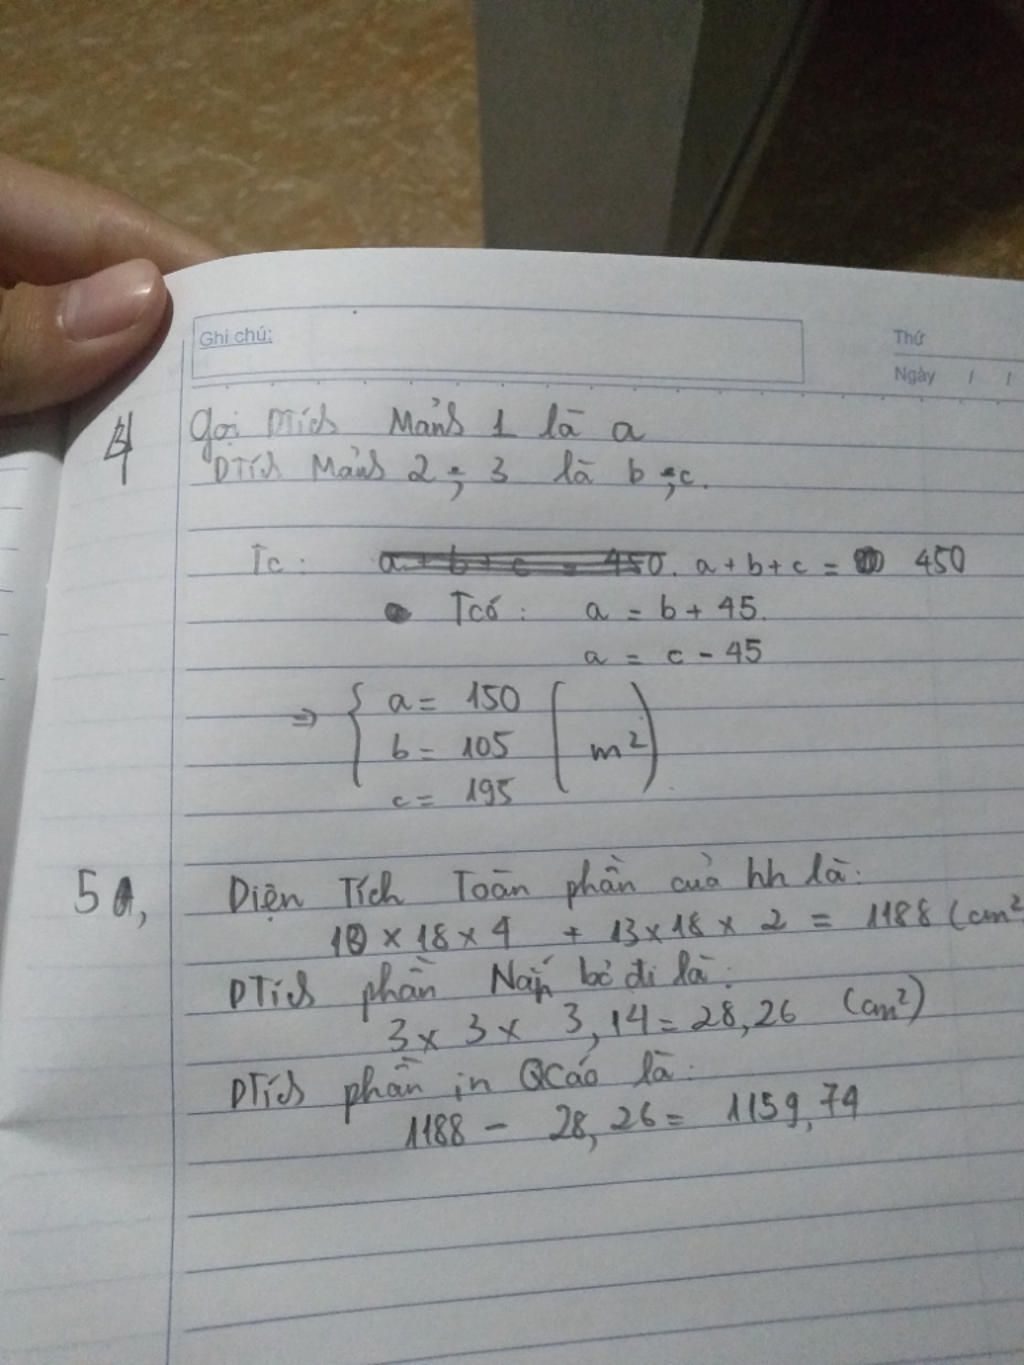 Ghi chú:
Thứ
Ngày / /
4 Gọi DTích Mảnh 1 là a
DTích Mảnh 2 ; 3 là b ; c.
Tc : a + b + c = 450. a + b + c = 450
Tcó : a = b + 45.
a = c - 45
⇒ { a = 150
b = 105 ( m² )
c = 195
5 a, Diện Tích Toàn phần của hh là:
10 × 18 × 4 + 13 × 18 × 2 = 1188 (cm²
DTích phần Nắp bỏ đi là:
3 × 3 × 3,14 = 28,26 (cm²)
DTích phần in QCáo là:
1188 - 28,26 = 1159,74